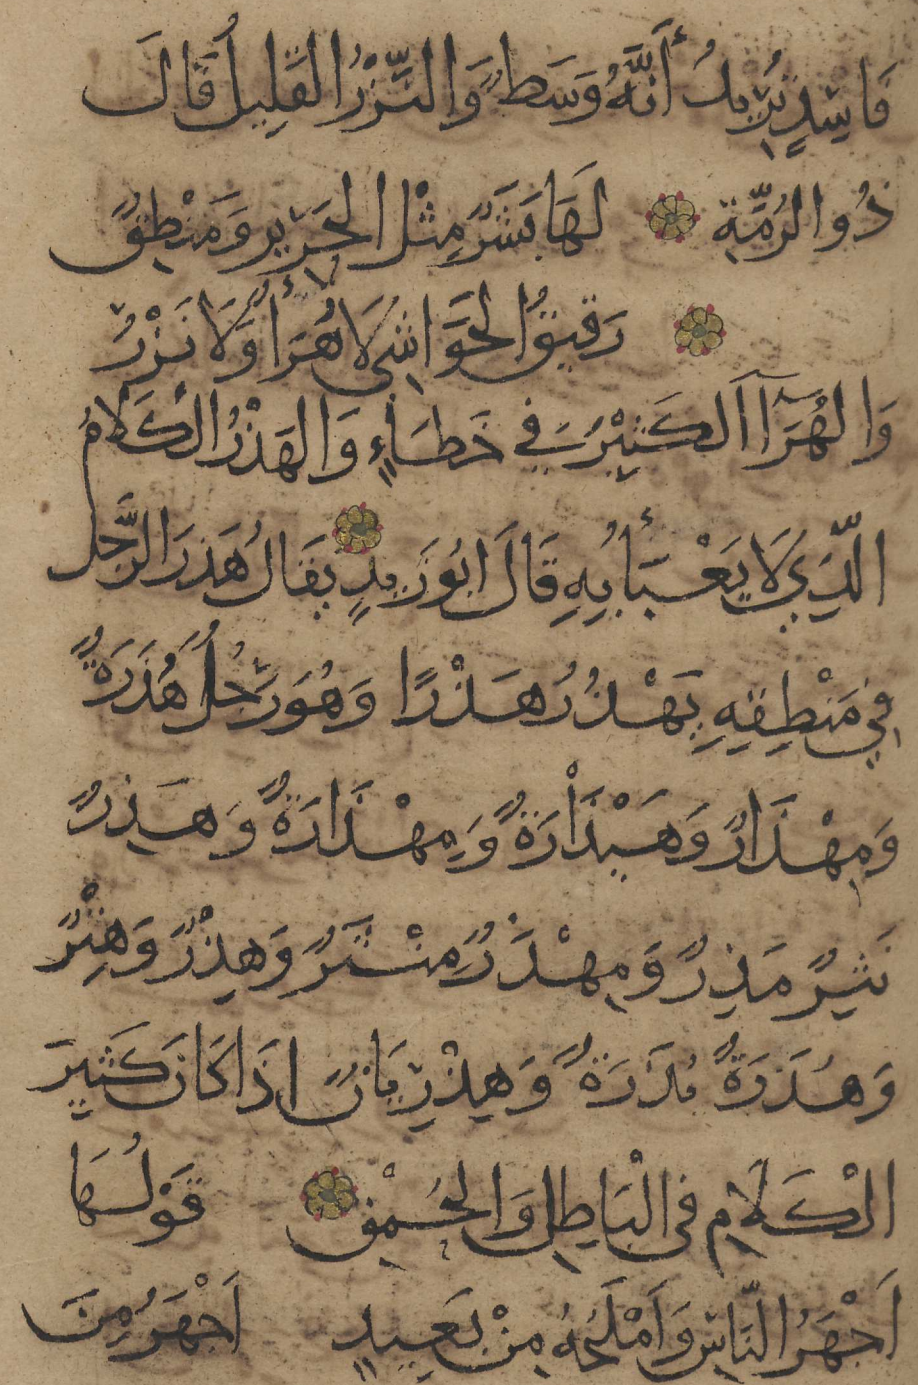 فَاسِدٍ يُرِيدُ أَنَّهُ وَسَطٌ وَالنَّزْرُ القَلِيلُ قَالَ
ذُو الرُمَّةِ لَهَا بَشَرٌ مِثْلُ الحَرِيرِ وَمَنْطِقٌ
رَقِيقُ الحَوَاشِي لَا هُرَاءٌ وَلَا نَزْرُ
وَالهُرَآءُ الكَثِيْرُ فِي خَطَاءٍ وَالهَذْرُ الكَلَامُ
الَّذِي لَا يَعْبَأُ بِهِ قَالَ ابُو زَيدٍ يقَالُ هَذَرَ الرَّجُل
فِي مَنْطِقِهِ يَهْذُرُ هَذْرًا وَهُوَ رَجُلٌ هُذَرَةٌ
وَمِهْذَارٌ وَهَيْذَارَةٌ وَمِهْذَارَةٌ وَهَذِرٌ
نَثِيرٌ مَذِرٌ وَمِهْذَرٌ مِنْثَرٌ وَهِذْرٌ وَهِتْرٌ
وَهُذَرَةٌ بُذَرَةٌ وَهِذْرِيَانٌ اذَا كَانَ كَثِيرَ
الْكَلَامِ فِي الْبَاطِلِ وَالحُمْقِ قَوْلُهَا
اَجْهَرُ النَّاسِ وَاَمْلَحُهُ مِنْ بَعِيدٍ اَجْهَرُ مِنَ